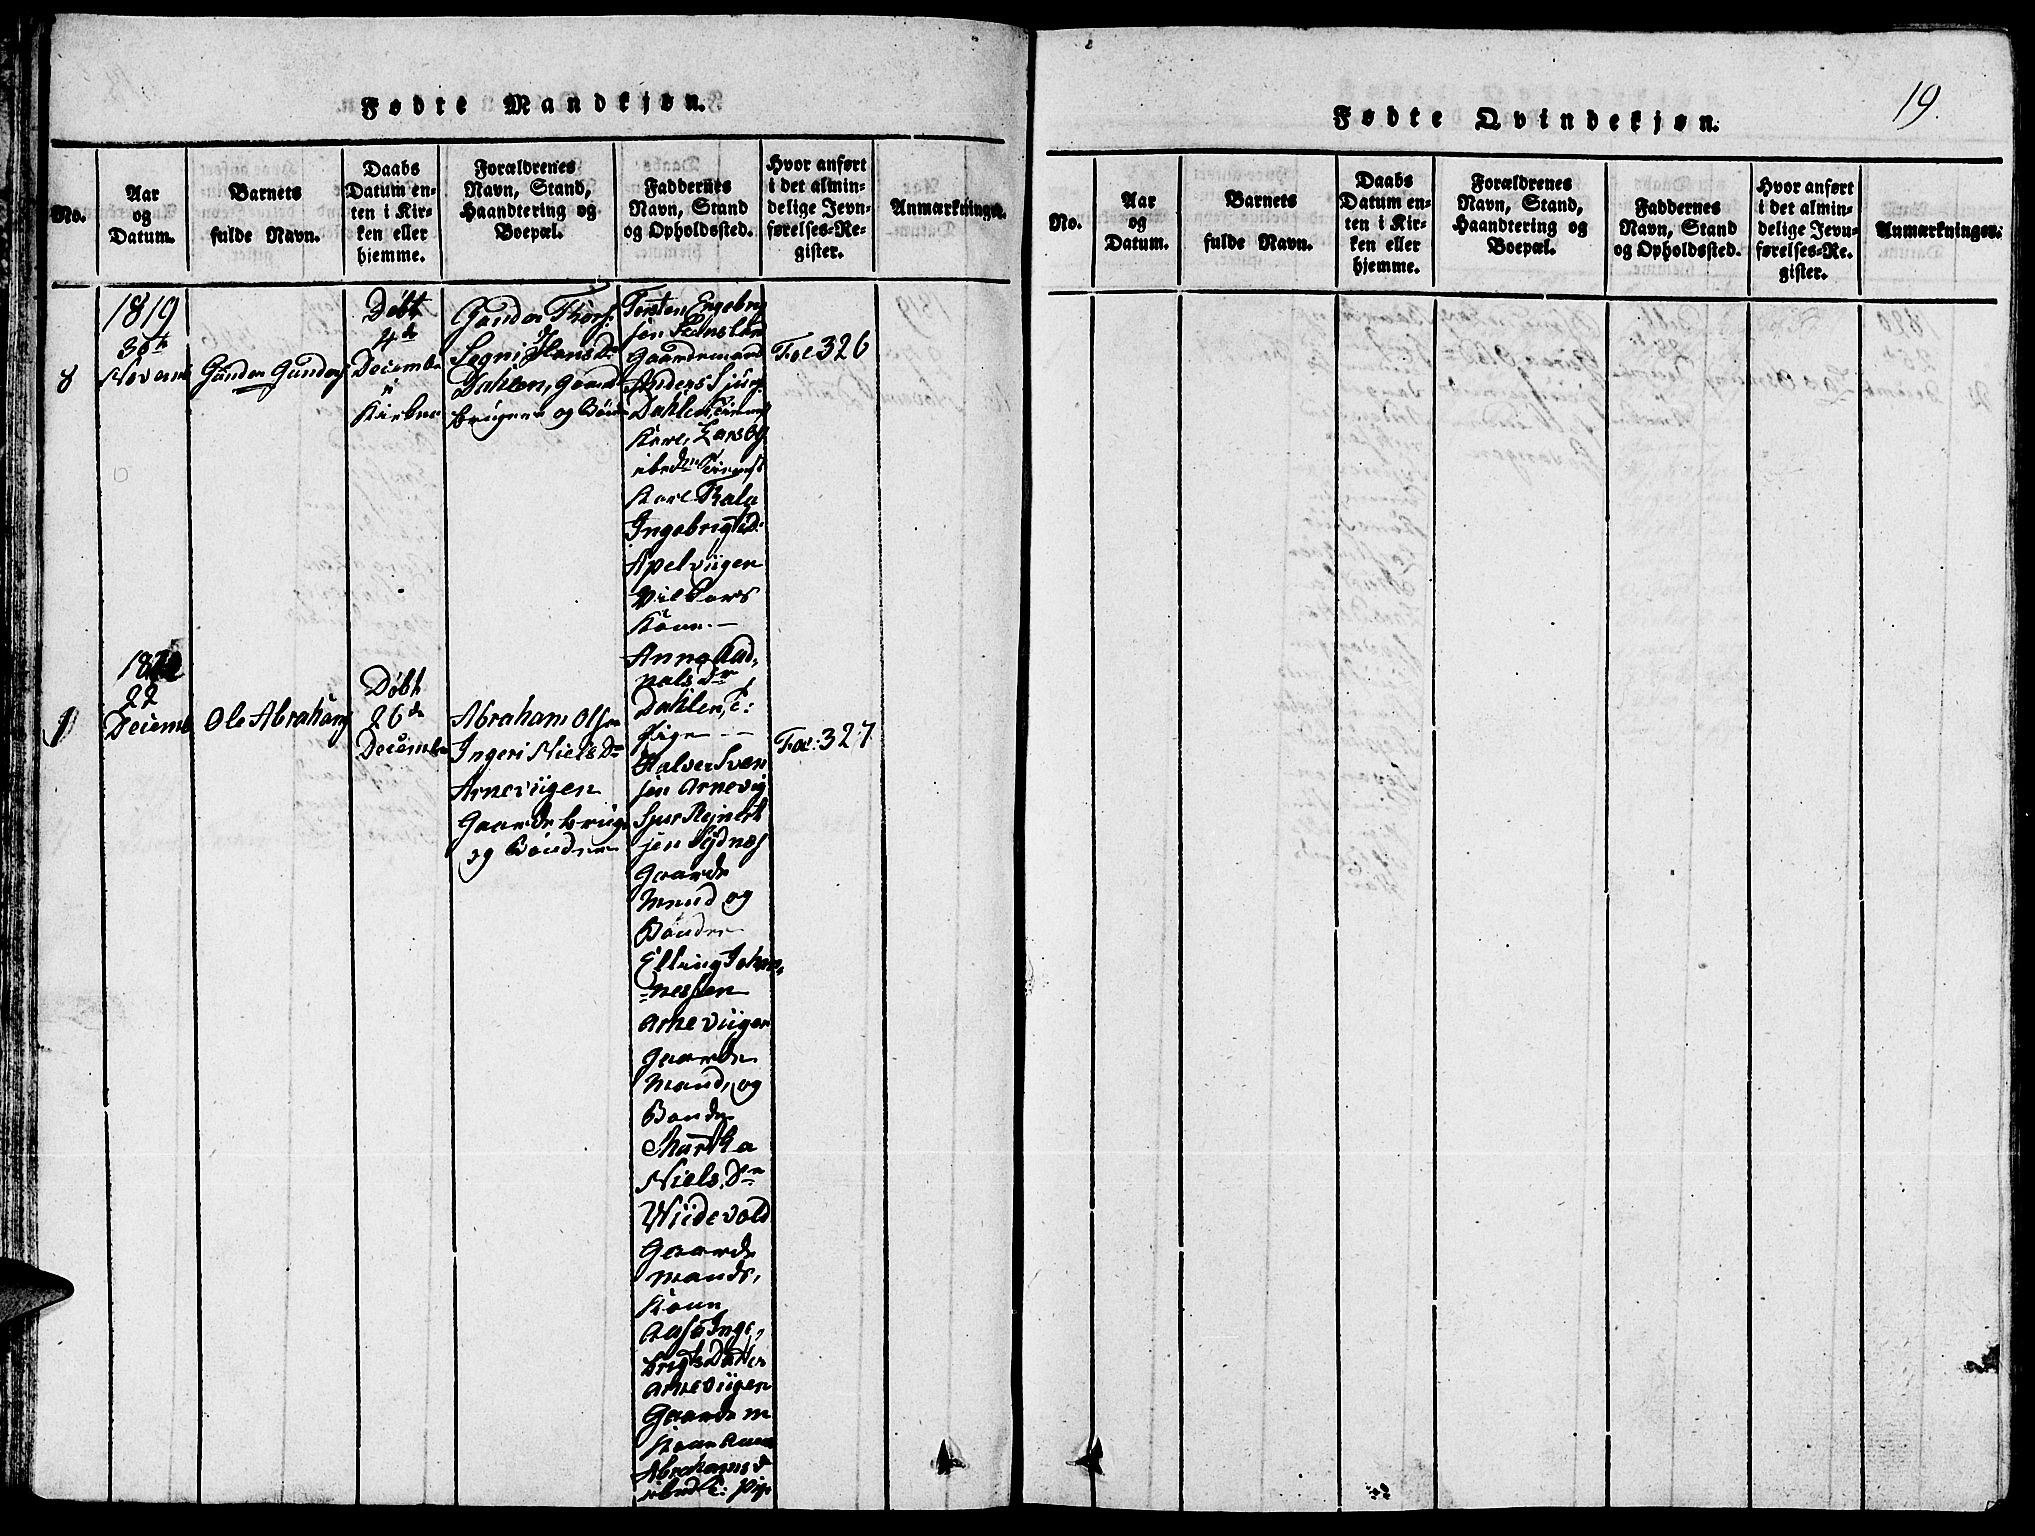 Fødte Mandkjøn.
No.
Aar
og
Datum.
Barnets
fulde Navn.
Daabs
Datum en-
ten i Kir-
ken eller
hjemme.
Forældrenes
Navn, Stand,
Haandtering og
Boepæl.
Faddernes
Navn, Stand
og Opholdssted.
Hvor anført
i det almin-
delige Jevn-
førelses-Re-
gister.
Anmærkninger.
8
1819
30te
Novemb
Gunder Gunders
Døbt
4de
Decembr
Kirken
Gunder Thors:
Segni Hans Dr
Dahlen, Gaard
bruger og Bønd
Torsten Engebrig
sen
Gaardemand
Anders
Dahlen
ibed
Kone
Ingebrigts D:
Apelviigen
Kone —
Anne
Dahlen, T:
Pige —
Fol 326
1
22
Decemb
Ole Abrahams
Døbt
26de
Decembr
Abraham Olsen
Ingeri Niels Dr
Arneviigen
Gaardebrug
og Bønder
Halver Sven
sen Arnevig
Gaarde
mand og
Bønder
Elling Johan,
-nessen
Arneviigen
Gaarde
mand, og
Bonde
Martha
Niels Dr
Wiidevold
Gaarde
mands,
Kone
Aase Inge,
brigts Datter
Arneviigen
Gaardem
Kone
Abrahams d
Fol: 327
Fødte Qvindekjøn.
19.
No.
Aar
og
Datum.
Barnets
fulde Navn.
Daabs
Datum en-
ten i Kir-
ken eller
hjemme.
Forældrenes
Navn, Stand,
Haandtering og
Boepæl.
Faddernes
Navn, Stand
og Opholdssted.
Hvor anført
i det almin-
delige Jevn-
førelses-Re-
gister.
Anmærkninger.